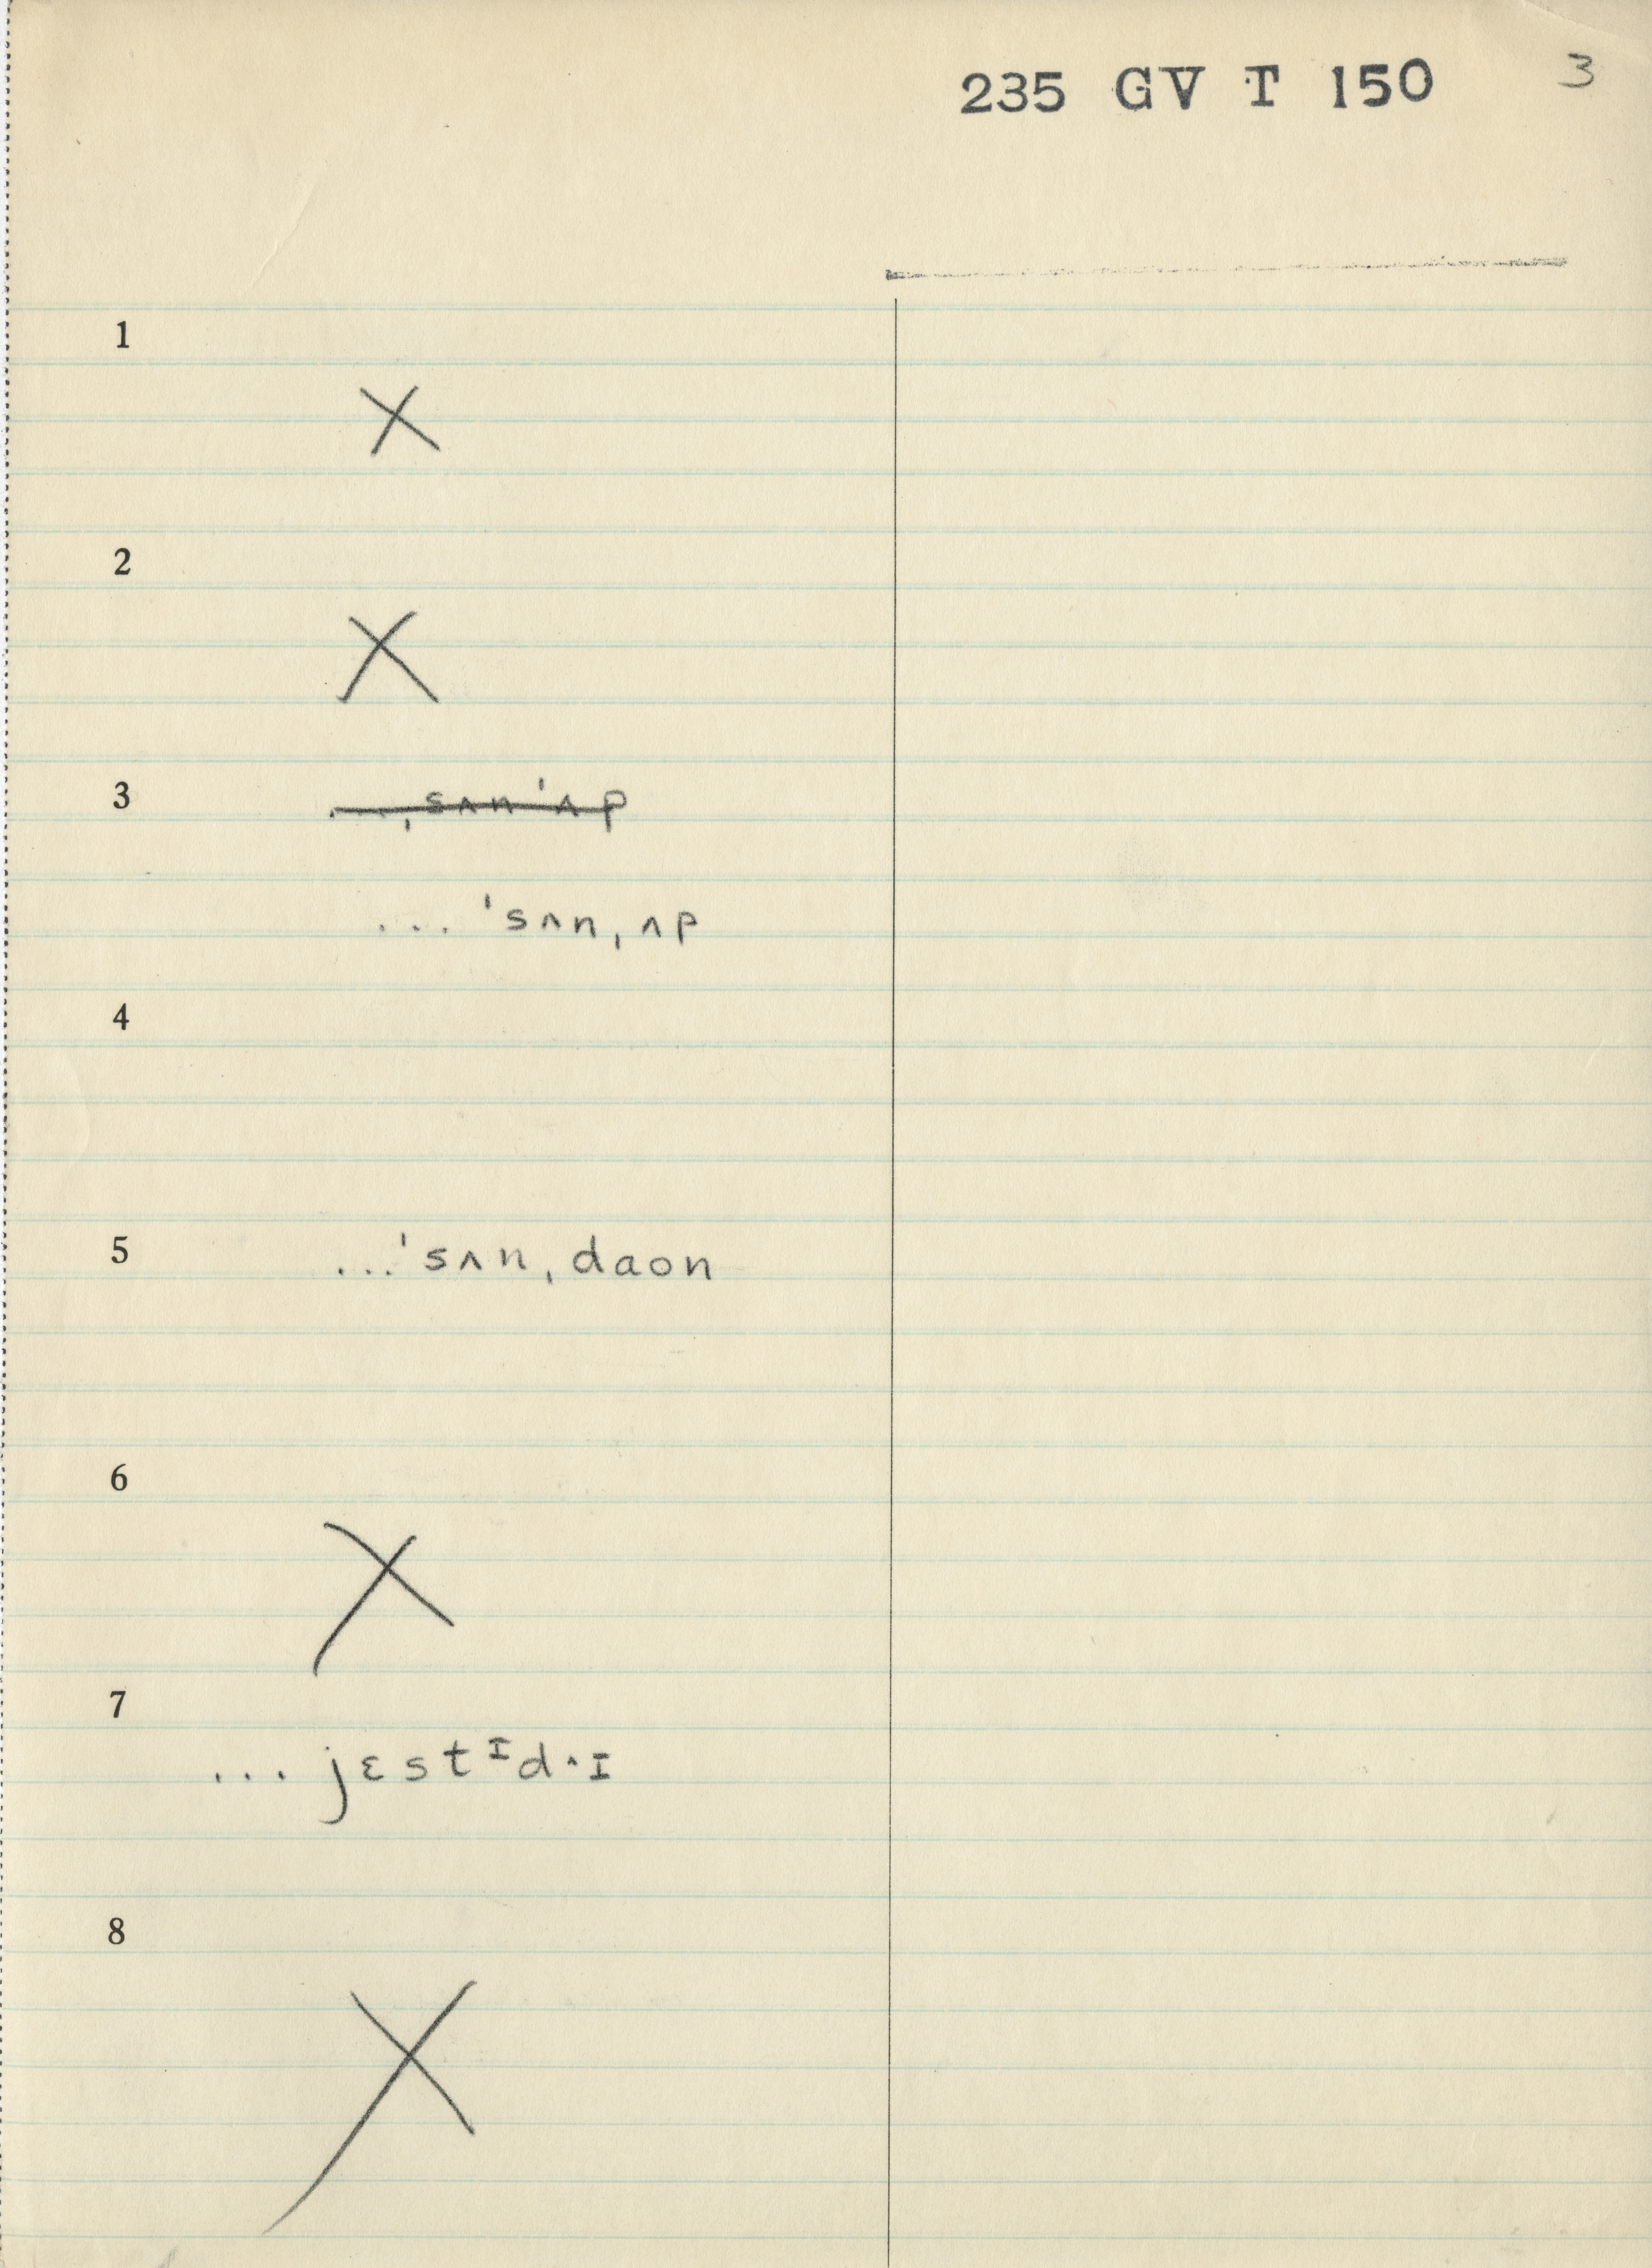 235 GV T 150 3
1
X
2
X
3 ... ˌsʌn ˈʌp
... ˈsʌn ˌʌp
4
5 ... ˈsʌn ˌdaon
6
X
7
... jɛstᶦd·ɪ
8
X